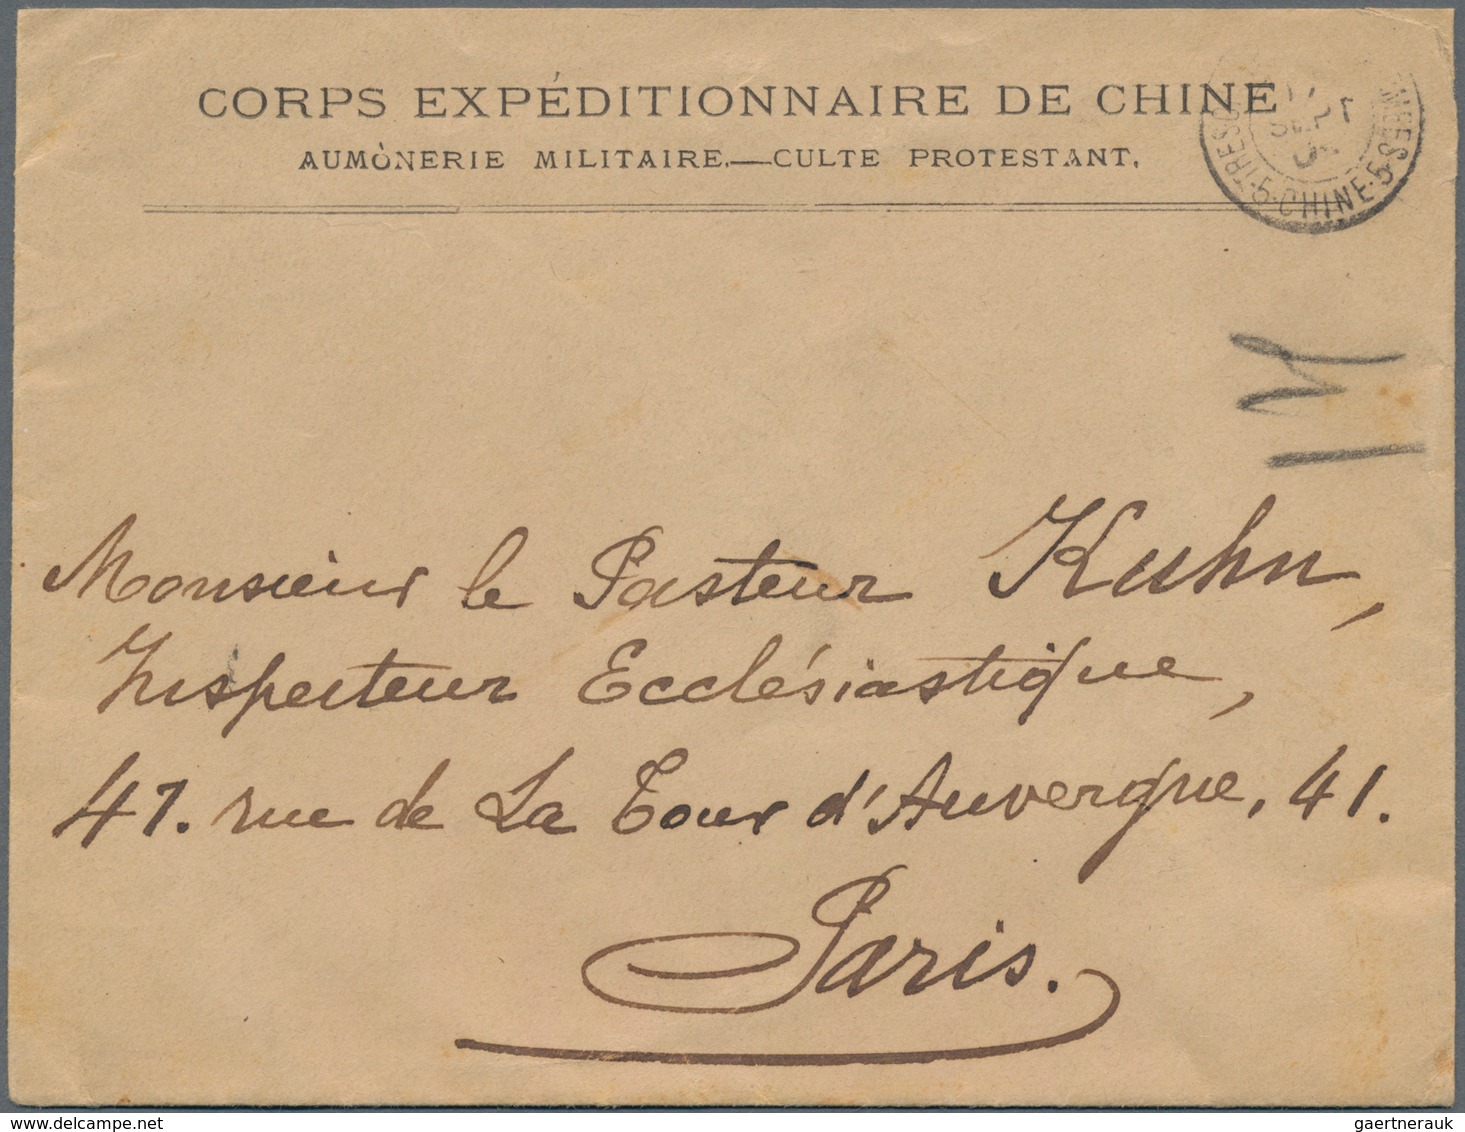 CORPS EXPÉDITIONNAIRE DE CHINE
AUMÒNERIE MILITAIRE.—CULTE PROTESTANT.
5·CHINE·5
SEPT
Monsieur le Pasteur Kuhn,
Inspecteur Ecclésiastique,
47. rue de La Tour d'Auvergne, 41.
Paris.
delcampe.net
gaertnerauk